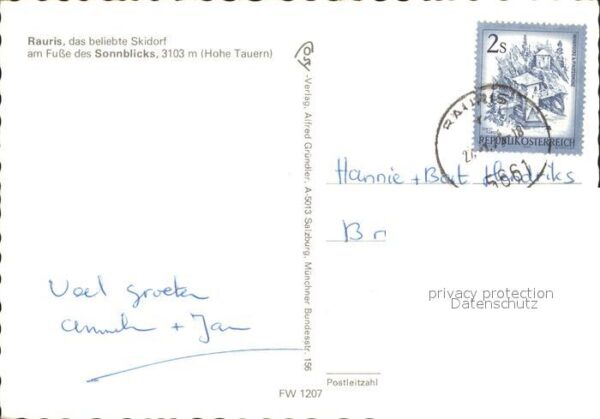 Rauris, das beliebte Skidorf
am Fuße des Sonnblicks, 3103 m (Hohe Tauern)
Cosy-Verlag, Alfred Gründler, A-5013 Salzburg, Münchner Bundesstr. 156
2s
REPUBLIK ÖSTERREICH
RAURIS
5661
Hannie + Bart Hendriks
Br
privacy protection
Datenschutz
Veel groeten
+ Jan
Postleitzahl
FW 1207